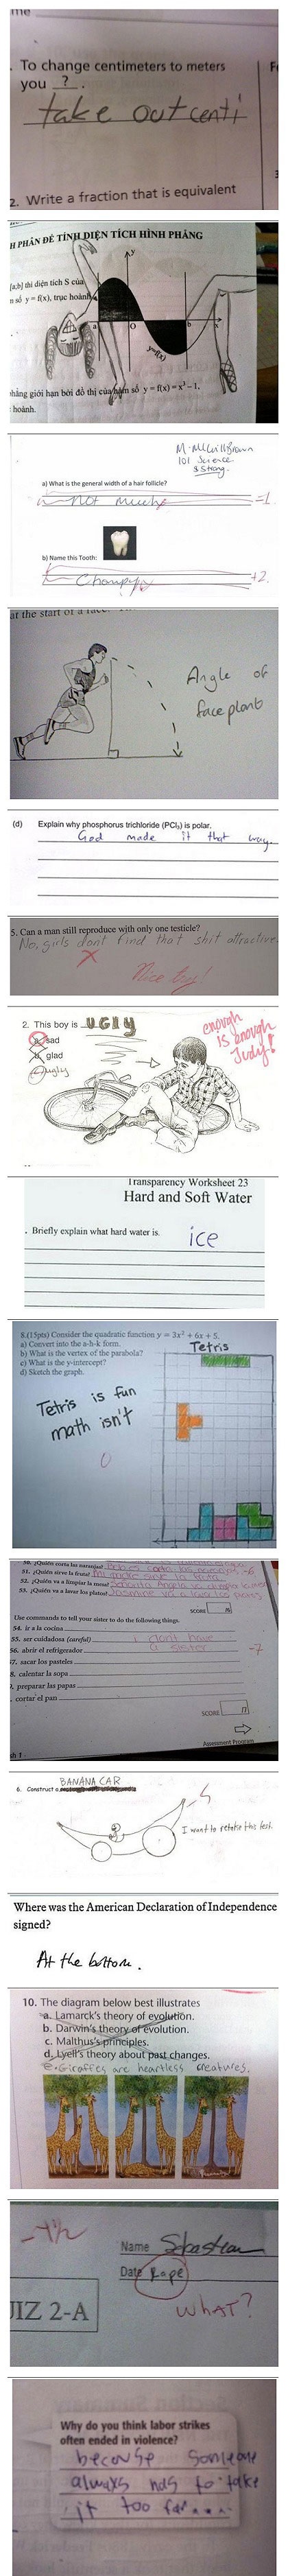 me
. To change centimeters to meters
you ? .
take out centi
2. Write a fraction that is equivalent
H PHÂN ĐỂ TÍNH DIỆN TÍCH HÌNH PHẲNG
[a;b] thì diện tích S của
n số y = f(x), trục hoành
y
a
O
b
x
y=f(x)
phẳng giới hạn bởi đồ thị của hàm số y = f(x) = x³ – 1,
hoành.
101 Science
& Strong.
a) What is the general width of a hair follicle?
Not much
-1
b) Name this Tooth:
Chompy
+2
at the start of a
Angle of
face plant
(d) Explain why phosphorus trichloride (PCl₃) is polar.
God made it that way
5. Can a man still reproduce with only one testicle?
No, girls don't find that shit attractive
Nice try!
2. This boy is UGLY
a. sad
b. glad
c. ugly
enough
is enough
Judy!
Transparency Worksheet 23
Hard and Soft Water
. Briefly explain what hard water is.
ice
8.(15pts) Consider the quadratic function y = 3x² + 6x + 5.
a) Convert into the a-h-k form.
b) What is the vertex of the parabola?
c) What is the y-intercept?
d) Sketch the graph.
Tetris
Tetris is fun
math isn't
0
50. ¿Quién corta las naranjas?
51. ¿Quién sirve la fruta?
52. ¿Quién va a limpiar la mesa?
53. ¿Quién va a lavar los platos?
-6
SCORE
Use commands to tell your sister to do the following things.
54. ir a la cocina
55. ser cuidadosa (careful)
i don't have
56. abrir el refrigerador
a sister
-7
57. sacar los pasteles
8. calentar la sopa
, preparar las papas
cortar el pan
SCORE
Assessment Program
6. Construct a
BANANA CAR
-5
I want to retake this test.
Where was the American Declaration of Independence
signed?
At the bottom.
10. The diagram below best illustrates
a. Lamarck's theory of evolution.
b. Darwin's theory of evolution.
c. Malthus's principles.
d. Lyell's theory about past changes.
e. Giraffes are heartless creatures.
-1½
Name Sebastian
Date Rape
WHAT?
UIZ 2-A
Why do you think labor strikes
often ended in violence?
because someone
always has to take
it too far....